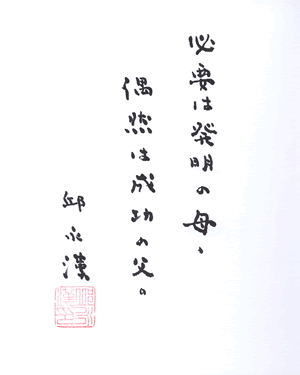 必要は発明の母、
偶然は成功の父。
邱永漢